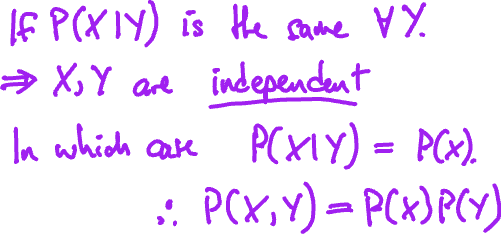 If P(X|Y) is the same ∀Y.
⇒ X,Y are independent
In which case P(X|Y) = P(X).
∴ P(X,Y) = P(X)P(Y)